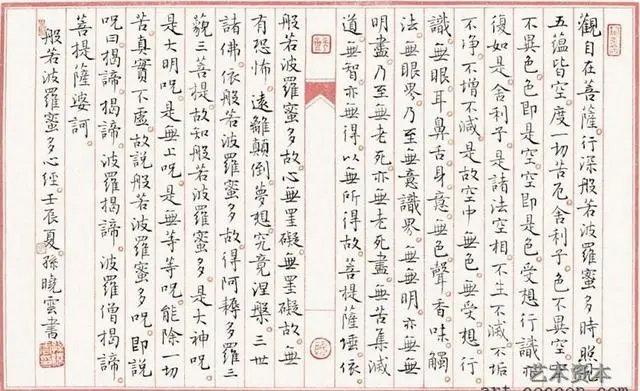 觀自在菩薩行深般若波羅蜜多時照見
五蘊皆空度一切苦厄舍利子色不異空空
不異色色即是空空即是色受想行識亦
復如是舍利子是諸法空相不生不滅不垢
不淨不增不減是故空中無色無受想行
識無眼耳鼻舌身意無色聲香味觸
法無眼界乃至無意識界無無明亦無無
明盡乃至無老死亦無老死盡無苦集滅
道無智亦無得以無所得故菩提薩埵依
般若波羅蜜多故心無罣礙無罣礙故無
有恐怖遠離顛倒夢想究竟涅槃三世
諸佛依般若波羅蜜多故得阿耨多羅三
藐三菩提故知般若波羅蜜多是大神咒
是大明咒是無上咒是無等等咒能除一切
苦真實不虛故說般若波羅蜜多咒即說
咒曰揭諦揭諦波羅揭諦波羅僧揭諦
菩提薩婆訶
般若波羅蜜多心經壬辰夏孫曉雲書
艺术资本